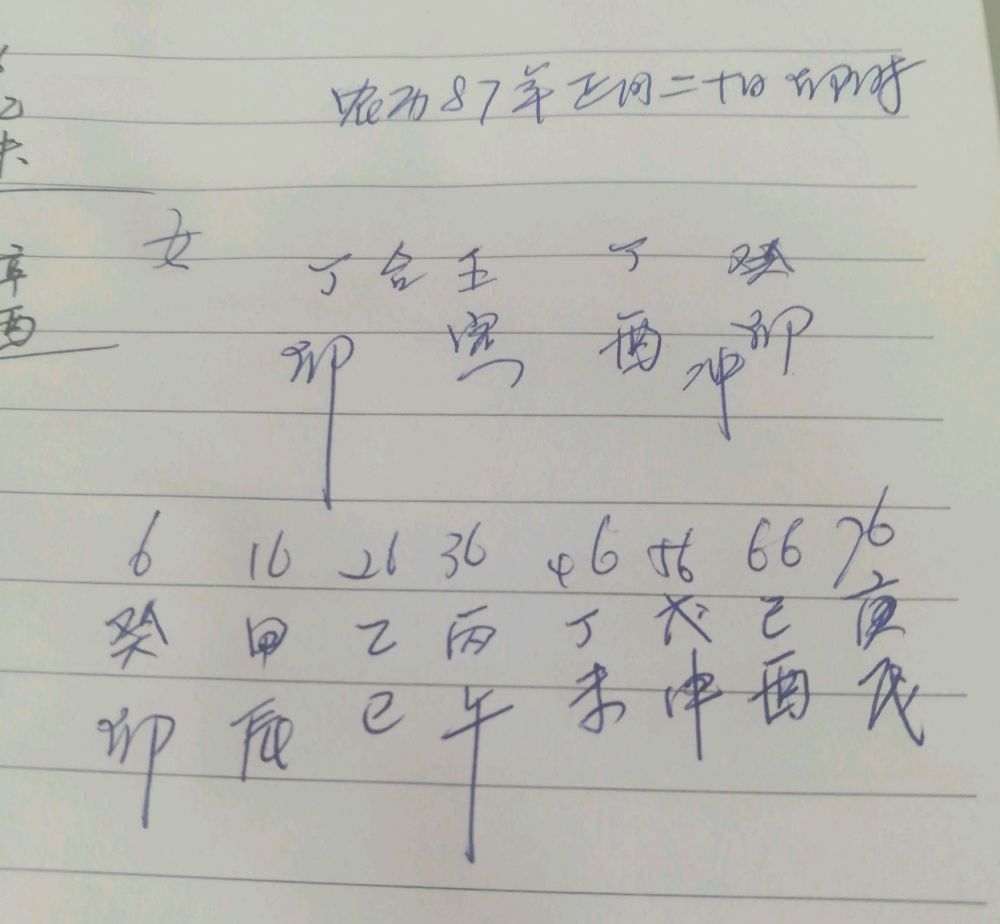 农历87年正月二十日卯时
女
丁合壬 丁 癸
卯 寅 酉冲卯
6 16 26 36 46 56 66 76
癸 甲 乙 丙 丁 戊 己 庚
卯 辰 巳 午 未 申 酉 戌
乙
辛
酉